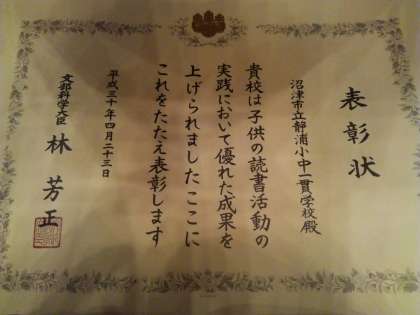 表彰状
沼津市立静浦小中一貫学校殿
貴校は子供の読書活動の
実践において優れた成果を
上げられましたここに
これをたたえ表彰します
平成三十年四月二十三日
文部科学大臣
林芳正